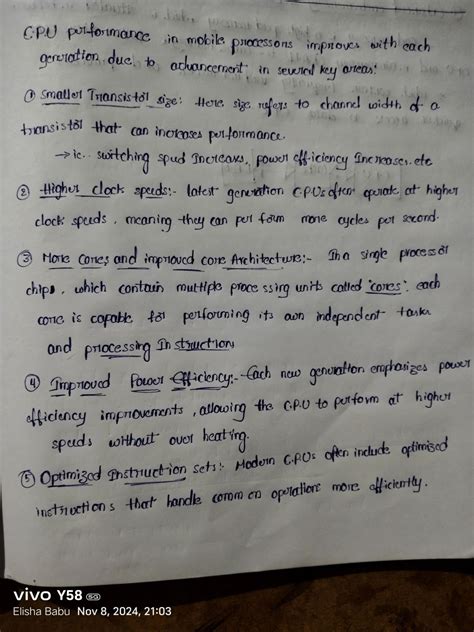 CPU performance in mobile processors improves with each
generation due to advancement in several key areas:
① Smaller Transistor size: Here size refers to channel width of a
transistor that can increases performance.
→ ie.. switching speed Increases, power efficiency Increases. etc
② Higher clock speeds:- latest generation CPUs often operate at higher
clock speeds, meaning they can perform more cycles per second.
③ More Cores and improved core Architecture:- In a single processor
chips, which contain multiple processing units called 'cores', each
core is capable for performing its own independent tasks
and processing Instruction
④ Improved Power Efficiency:- Each new generation emphasizes power
efficiency improvements, allowing the CPU to perform at higher
speeds without over heating.
⑤ Optimized Instruction sets:- Modern CPUs often include optimized
instructions that handle common operations more efficiently.
vivo Y58 5G
Elisha Babu Nov 8, 2024, 21:03